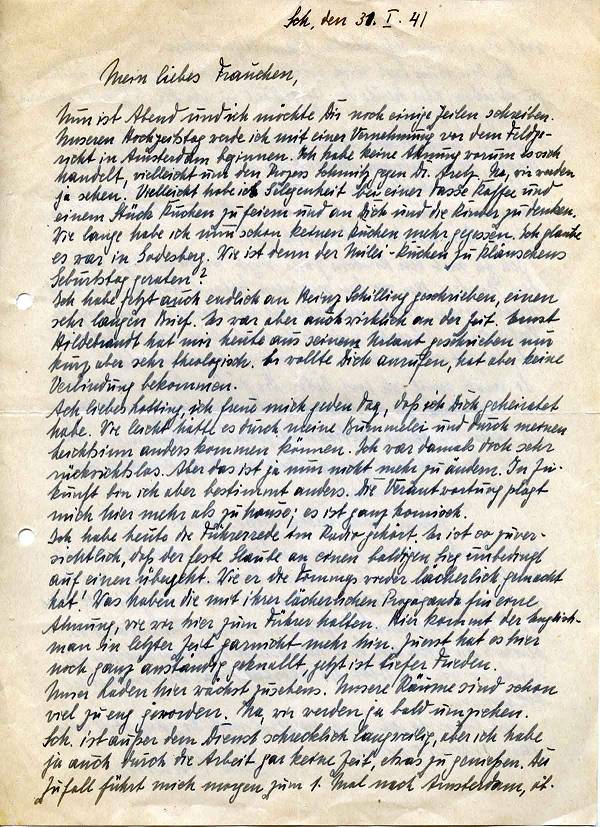 Sch, den 30. I. 41
Mein liebes Frauchen,
Nun ist Abend und ich möchte Dir noch einige Zeilen schreiben.
Unseren Hochzeitstag werde ich mit einer Vernehmung vor dem Feldge-
richt in Amsterdam beginnen. Ich habe keine Ahnung worum es sich
handelt, vielleicht um den Prozess Schmitz gegen Dr. Na, wir werden
ja sehen. Vielleicht habe ich Gelegenheit bei einer Tasse Kaffee und
einem Stück Kuchen zu feiern und an Dich und die Kinder zu denken.
Wie lange habe ich nun schon keinen Kuchen mehr gegessen. Ich glaube
es war in Godesberg. Wie ist denn der Kuchen zu Kläuschens
Geburtstag geraten?
Ich habe jetzt auch endlich an Heinz Schilling geschrieben, einen
sehr langen Brief. Es war aber auch wirklich an der Zeit. Ernst
Hildebrandt hat mir heute aus seinem Urlaub geschrieben nur
kurz aber sehr theologisch. Er wollte Dich anrufen, hat aber keine
Verbindung bekommen.
Ach liebes ich freue mich jeden Tag, daß ich Dich geheiratet
habe. Wie leicht hätte es durch meine Bummelei und durch meinen
Leichtsinn anders kommen können. Ich war damals doch sehr
rücksichtslos. Aber das ist ja nun nicht mehr zu ändern. In Zu-
kunft bin ich aber bestimmt anders. Die Verantwortung plagt
mich hier mehr als zu hause; es ist ganz komisch.
Ich habe heute die Führerrede im Radio gehört. Er ist so zuver-
sichtlich, daß der feste Glaube an einen baldigen Sieg unbedingt
auf einen übergeht. Wie er die Tommys wieder lächerlich gemacht
hat! Was haben die mit ihrer lächerlichen Propaganda für eine
Ahnung, wie wir hier zum Führer halten. Hier kommt der Englisch-
man in letzter Zeit garnicht mehr hin. Zuerst hat es hier
noch ganz anständig geknallt, jetzt ist tiefer Frieden.
Unser Laden hier wächst zusehens. Unsere Räume sind schon
viel zu eng geworden. Na, wir werden ja bald umziehen.
Sch. ist außer dem Dienst schrecklich langweilig, aber ich habe
ja auch durch die Arbeit gar keine Zeit, etwas zu genießen. Der
Zufall führt mich morgen zum 1. Mal nach Amsterdam,